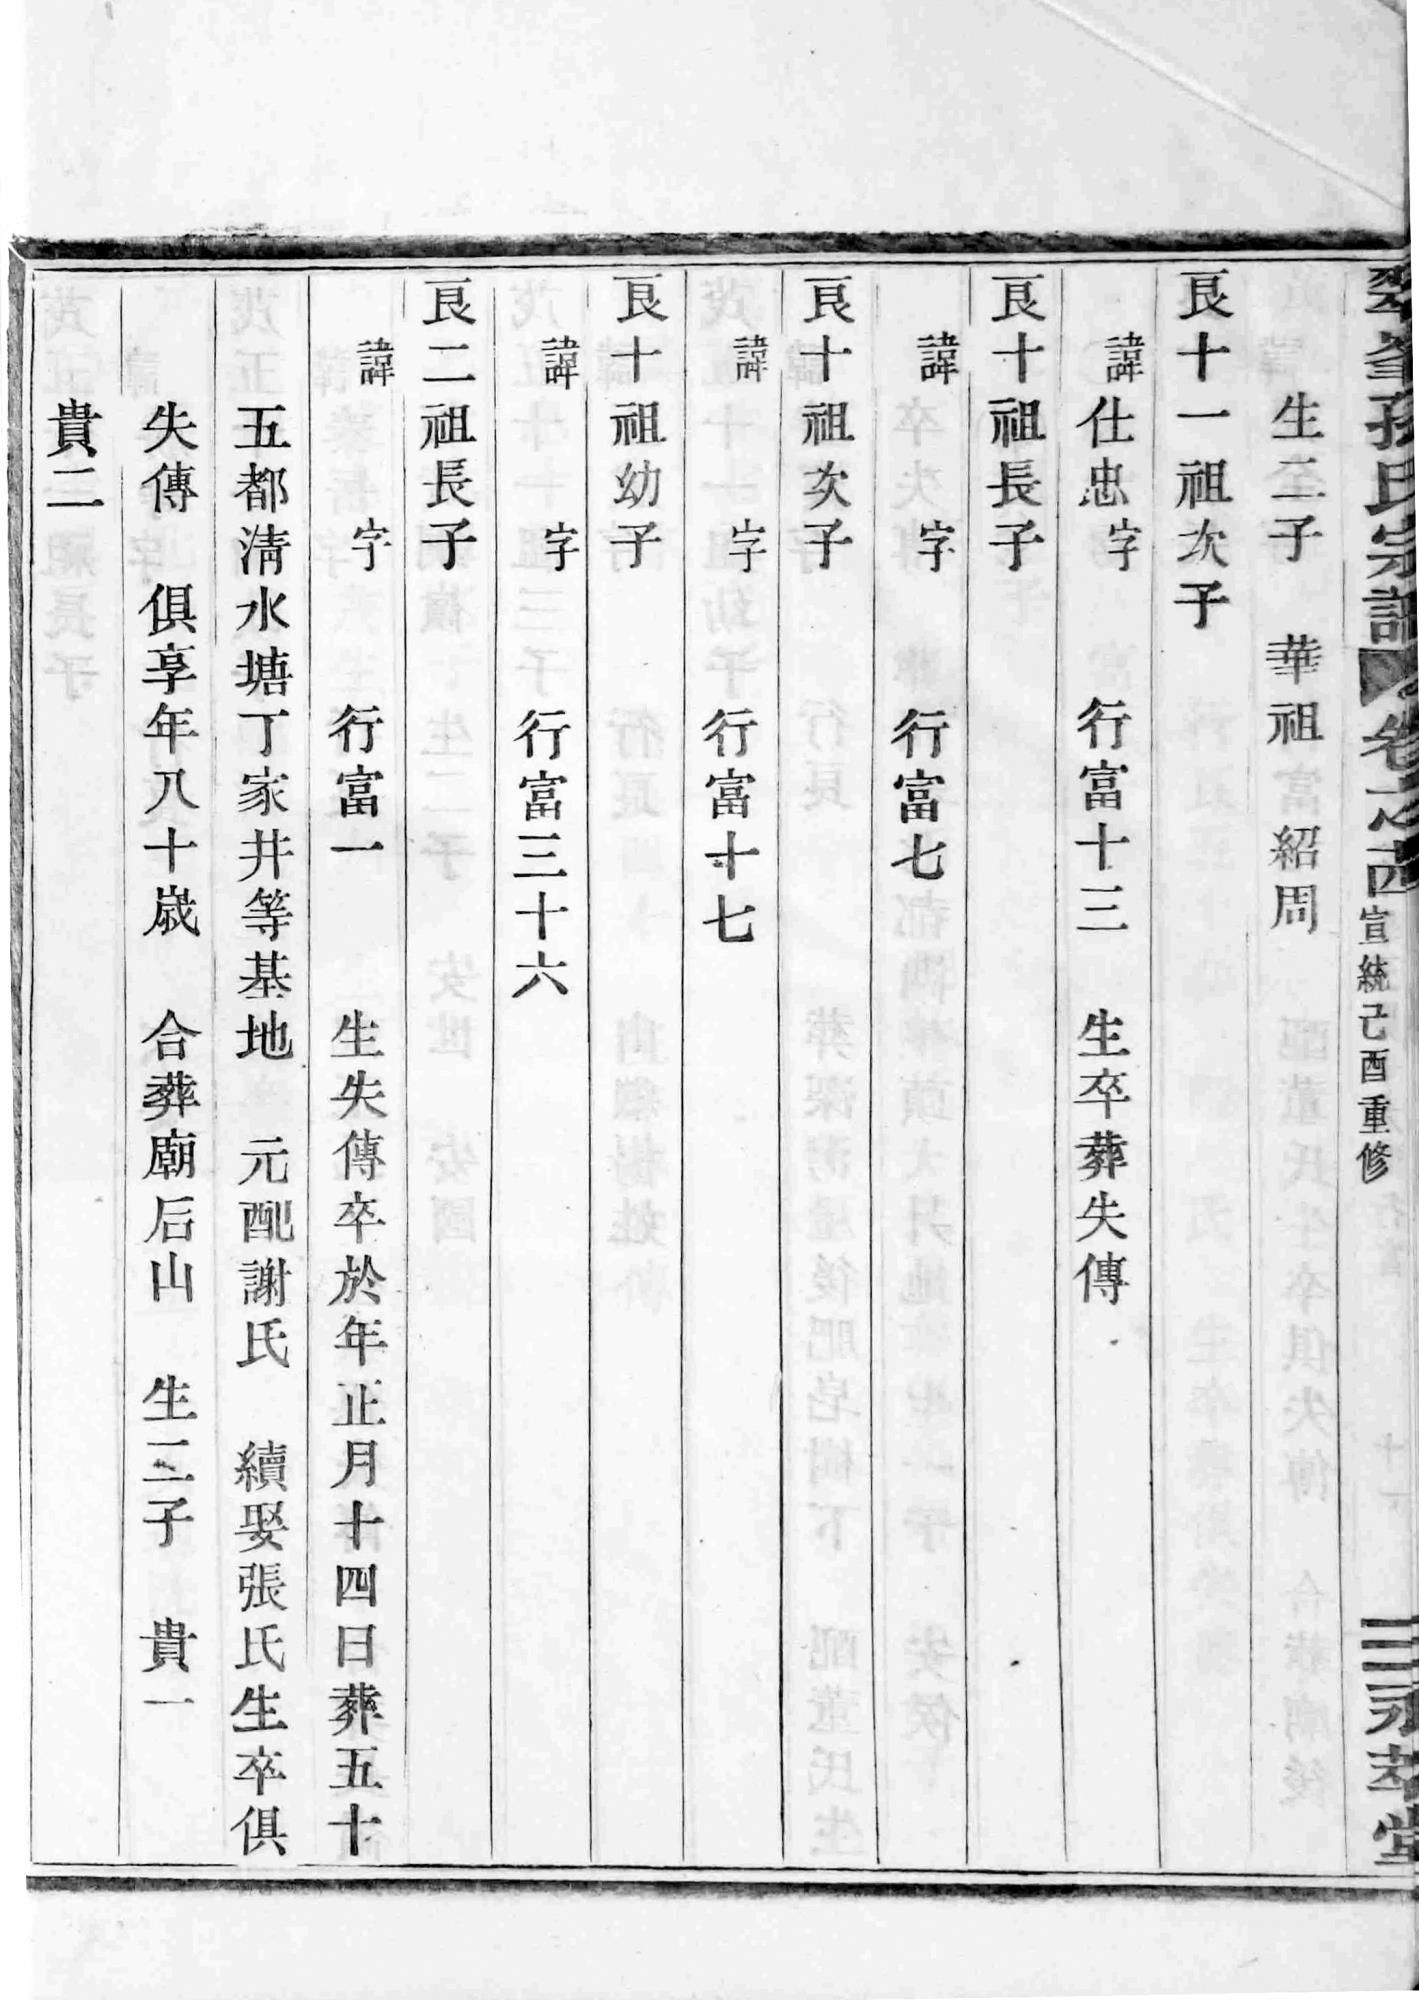 翠峯孫氏宗譜 卷之西 宣統己酉重修 三 永萃堂
生二子 華祖富 紹周
良十一祖次子
諱仕忠字 行富十三 生卒葬失傳
良十祖長子
諱 字 行富七
良十祖次子
諱 字 行富十七
良十祖幼子
諱 字 行富三十六
良二祖長子
諱 字 行富一 生失傳卒於年正月十四日葬五十
五都清水塘丁家井等基地 元配謝氏 續娶張氏生卒俱
失傳 俱享年八十歲 合葬廟后山 生二子 貴一
貴二